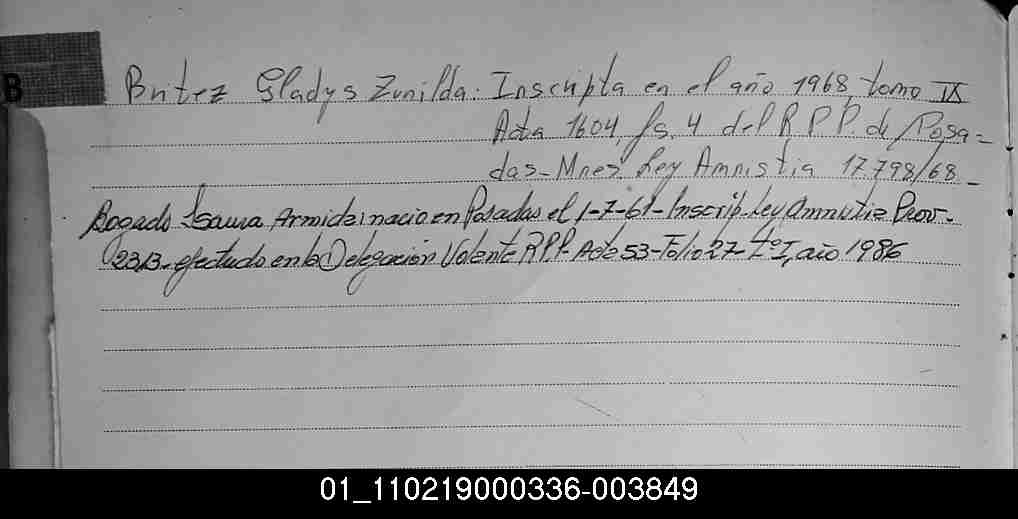 B
Britez Gladys Zunilda: Inscripta en el año 1968, tomo IX
Acta 1604, fs. 4 del R.P.P. de Posa-
das-Mnes. Ley Amnistia 17.798/68-
Bogado Isaura Armida: nacio en Posadas el 1-7-61- Inscrip. Ley Amnistia Prov.
2313- efectudo en la Delegación Volante RPP- Acta 53-Folio 27- Tº I, año 1986
01_110219000336-003849